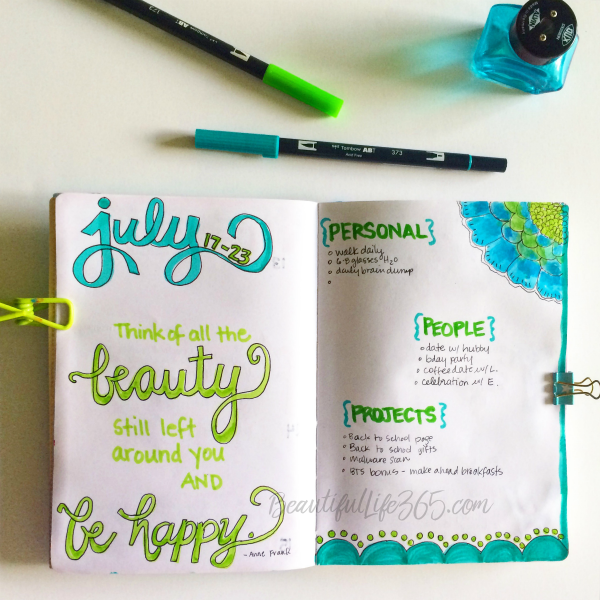 Tombow ABT
373
july 17-23
Think of all the
beauty
still left
around you
AND
be happy.
- Anne Frank
{PERSONAL}
walk daily
6-8 glasses H2O
daily brain dump
{PEOPLE}
date w/ hubby
bday party
coffee date w/ L.
celebration w/ E.
{PROJECTS}
Back to school page
Back to school gifts
Malware scan
BTS bonus - make ahead breakfasts
BeautifulLife365.com